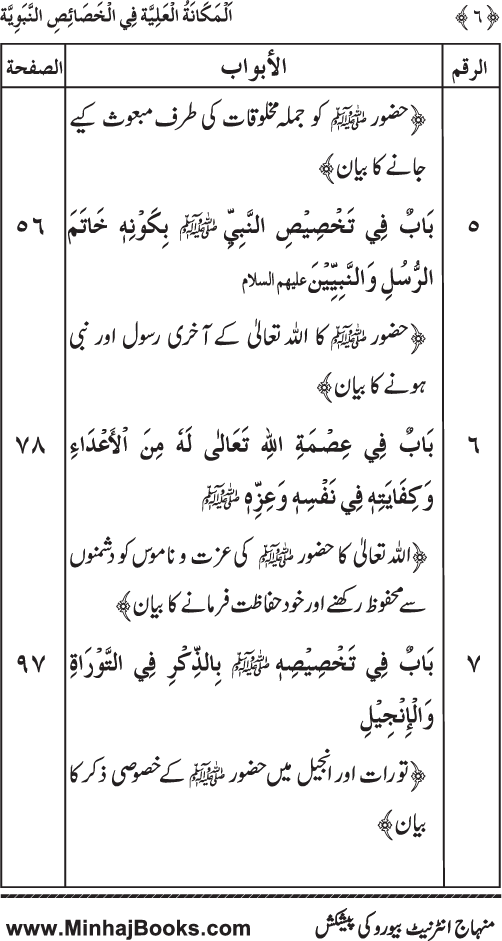 ﴿٦﴾ اَلْمَكَانَةُ الْعَلِيَّة فِي الْخَصَائِصِ النَّبَوِيَّة
الرقم الأبواب الصفحة
﴿حضور ﷺ کو جملہ مخلوقات کی طرف مبعوث کیے
جانے کا بیان﴾
٥ بَابٌ فِي تَخْصِيْصِ النَّبِيِّ ﷺ بِكَوْنِهٖ خَاتَمَ ٥٦
الرُّسُلِ وَالنَّبِيِّيْنَ علیهم السلام
﴿حضور ﷺ کا اللہ تعالیٰ کے آخری رسول اور نبی
ہونے کا بیان﴾
٦ بَابٌ فِي عِصْمَةِ اللهِ تَعَالٰى لَهٗ مِنَ الْأَعْدَاءِ ٧٨
وَكِفَايَتِهٖ فِي نَفْسِهٖ وَعِزِّهٖ ﷺ
﴿اللہ تعالیٰ کا حضور ﷺ کی عزت و ناموس کو دشمنوں
سے محفوظ رکھنے اور خود حفاظت فرمانے کا بیان﴾
٧ بَابٌ فِي تَخْصِيْصِهٖ ﷺ بِالذِّكْرِ فِي التَّوْرَاةِ ٩٧
وَالْإِنْجِيْلِ
﴿تورات اور انجیل میں حضور ﷺ کے خصوصی ذکر کا
بیان﴾
منہاج انٹرنیٹ بیورو کی پیشکش www.MinhajBooks.com